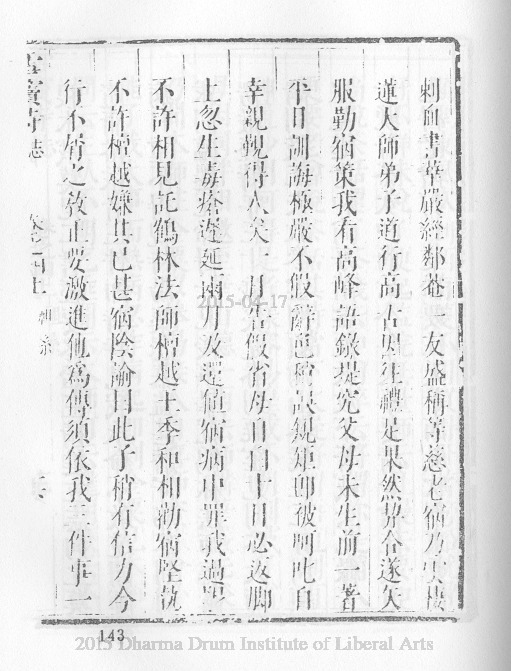 刺血書華嚴經鄰菴一友盛稱等慈老宿乃雲棲
蓮大師弟子道行高古因往禮足果然契合遂矢
服勤宿策我看高峰語錄提究父母未生前一著
平日訓誨極嚴不假辭色稍誤規矩即被呵叱自
幸親覲得人矣一日告假省母自白十日必返腳
上忽生毒瘡遲延兩月及還值宿病中罪我過期
不許相見託鶴林法師檀越王季和相勸宿堅執
不許檀越嫌其已甚宿陰諭曰此子稍有信力今
行不屑之教正要激進他為傳須依我三件事一
寺志 卷之四上
2015-04-17
143
2015 Dharma Drum Institute of Liberal Arts